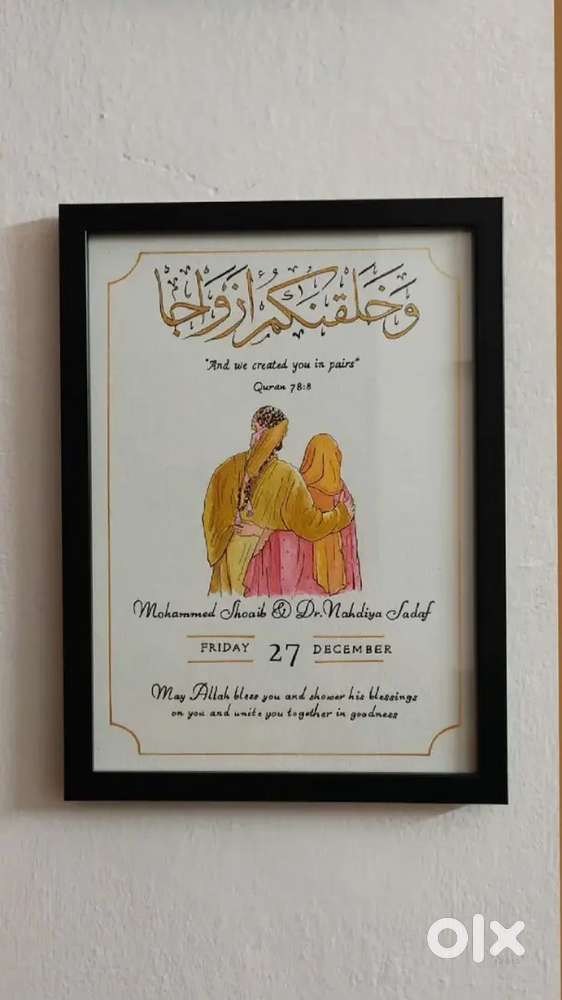 وَخَلَقْنَٰكُمْ أَزْوَٰجًا
"And we created you in pairs"
Quran 78:8
Mohammed Shoaib & Dr. Nahdiya Sadaf
FRIDAY 27 DECEMBER
May Allah bless you and shower his blessings
on you and unite you together in goodness
olx